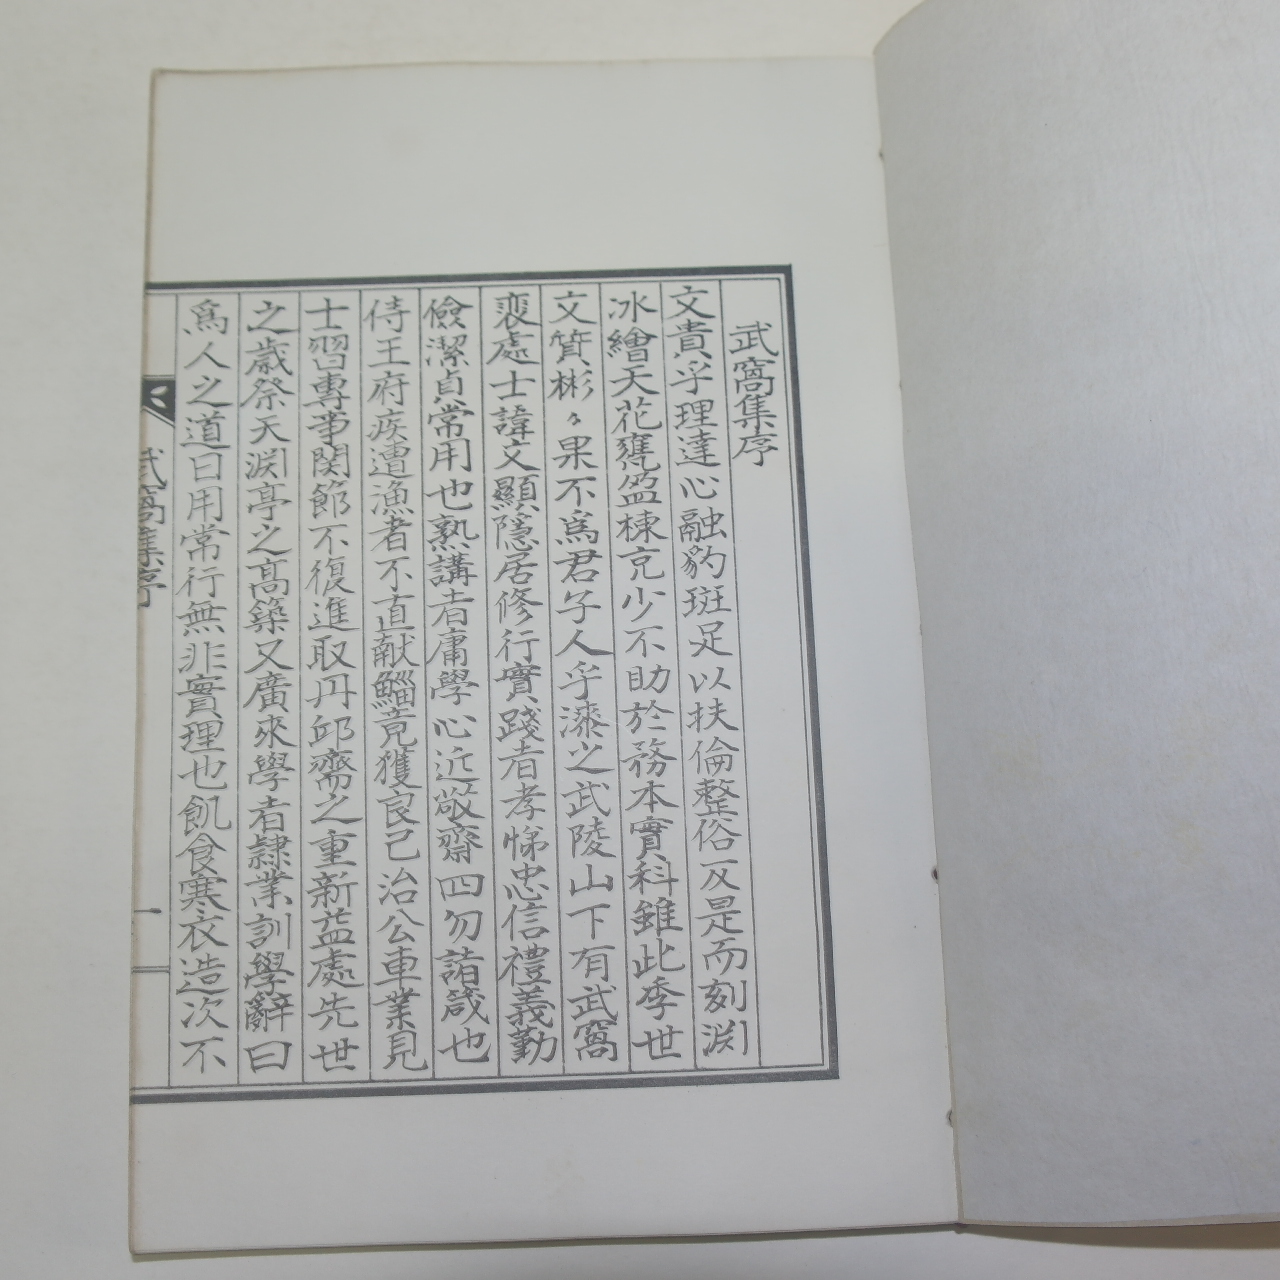 武窩集序
文貴乎理達心融豹斑足以扶倫整俗反是而刻淵
冰繪天花甕盈棟充少不助於務本實科雖此季世
文質彬々果不爲君子人乎漆之武陵山下有武窩
裵處士諱文顯隱居修行實踐者孝悌忠信禮義勤
儉潔貞常用也熟講者庸學心近敬齋四勿諸箴也
侍王府疾遭漁者不直献鯔竟獲良己治公車業見
士習專事関節不復進取丹邱齋之重新盖處先世
之歲祭天淵亭之高築又廣來學者隷業訓學辭曰
爲人之道日用常行無非實理也飢食寒衣造次不
武窩集序 一